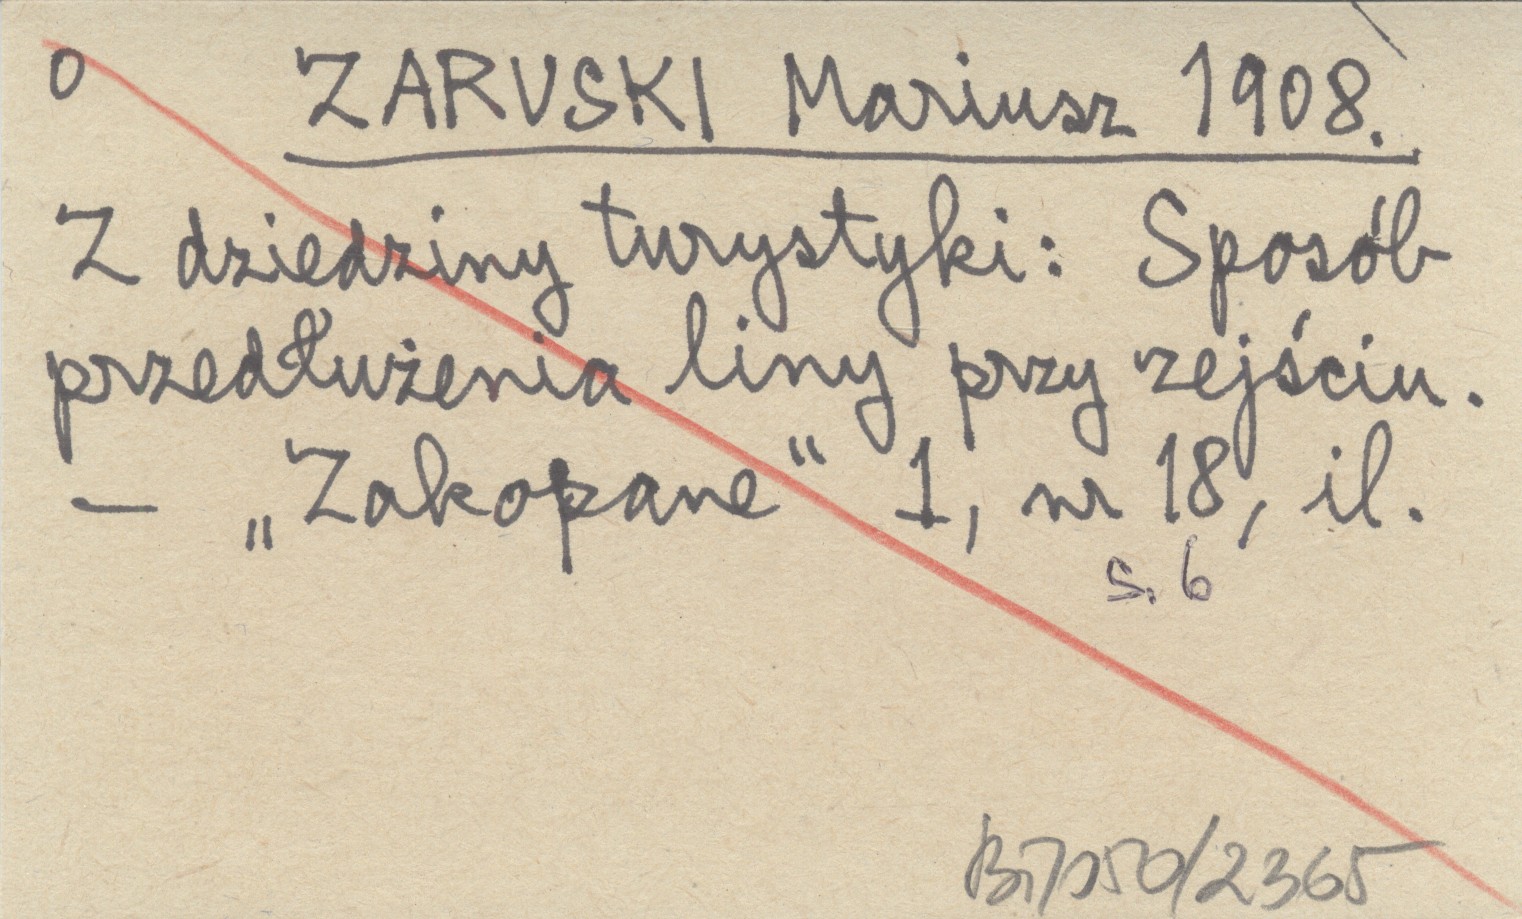 o ZARUSKI Mariusz 1908.
Z dziedziny turystyki: Sposób
przedłużenia liny przy zejściu.
— „Zakopane“ 1, nr 18, il.
s. 6